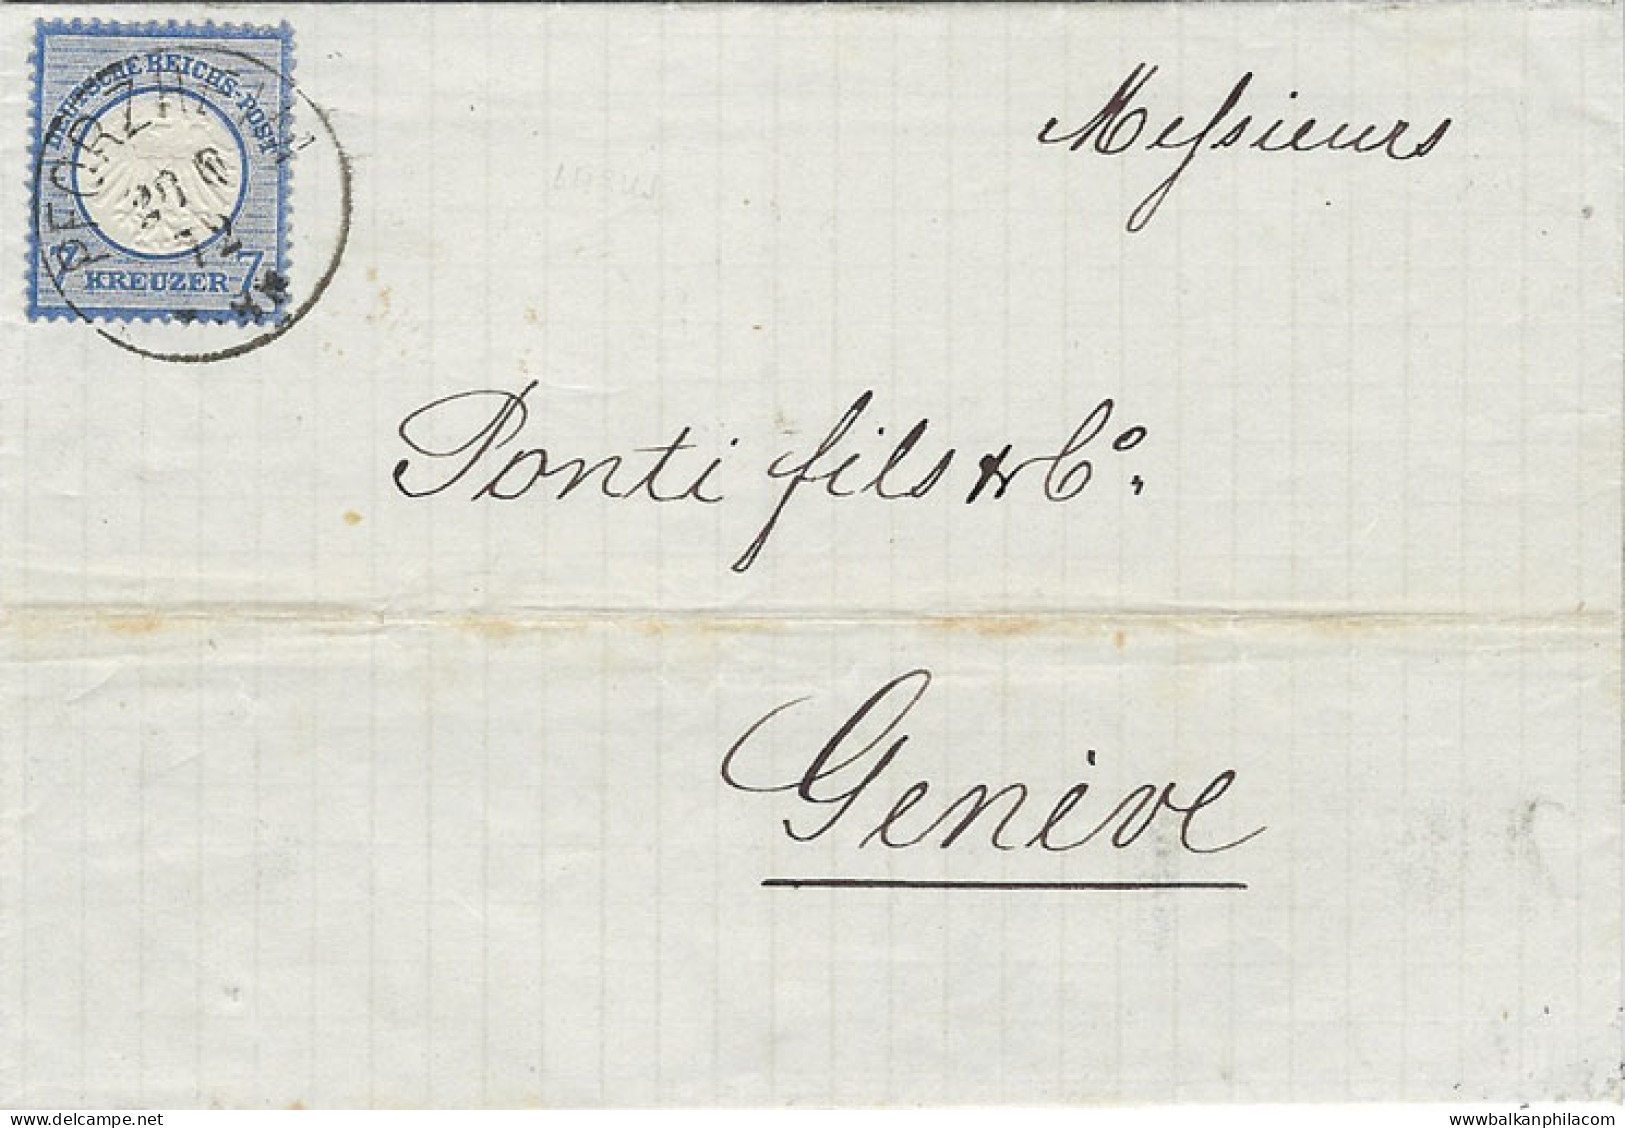 DEUTSCHE REICHS-POST
7 KREUZER 7
PFORZHEIM
Messieurs
Ponti fils & Co.
Genève
delcampe.net
wwwbalkanphilacom